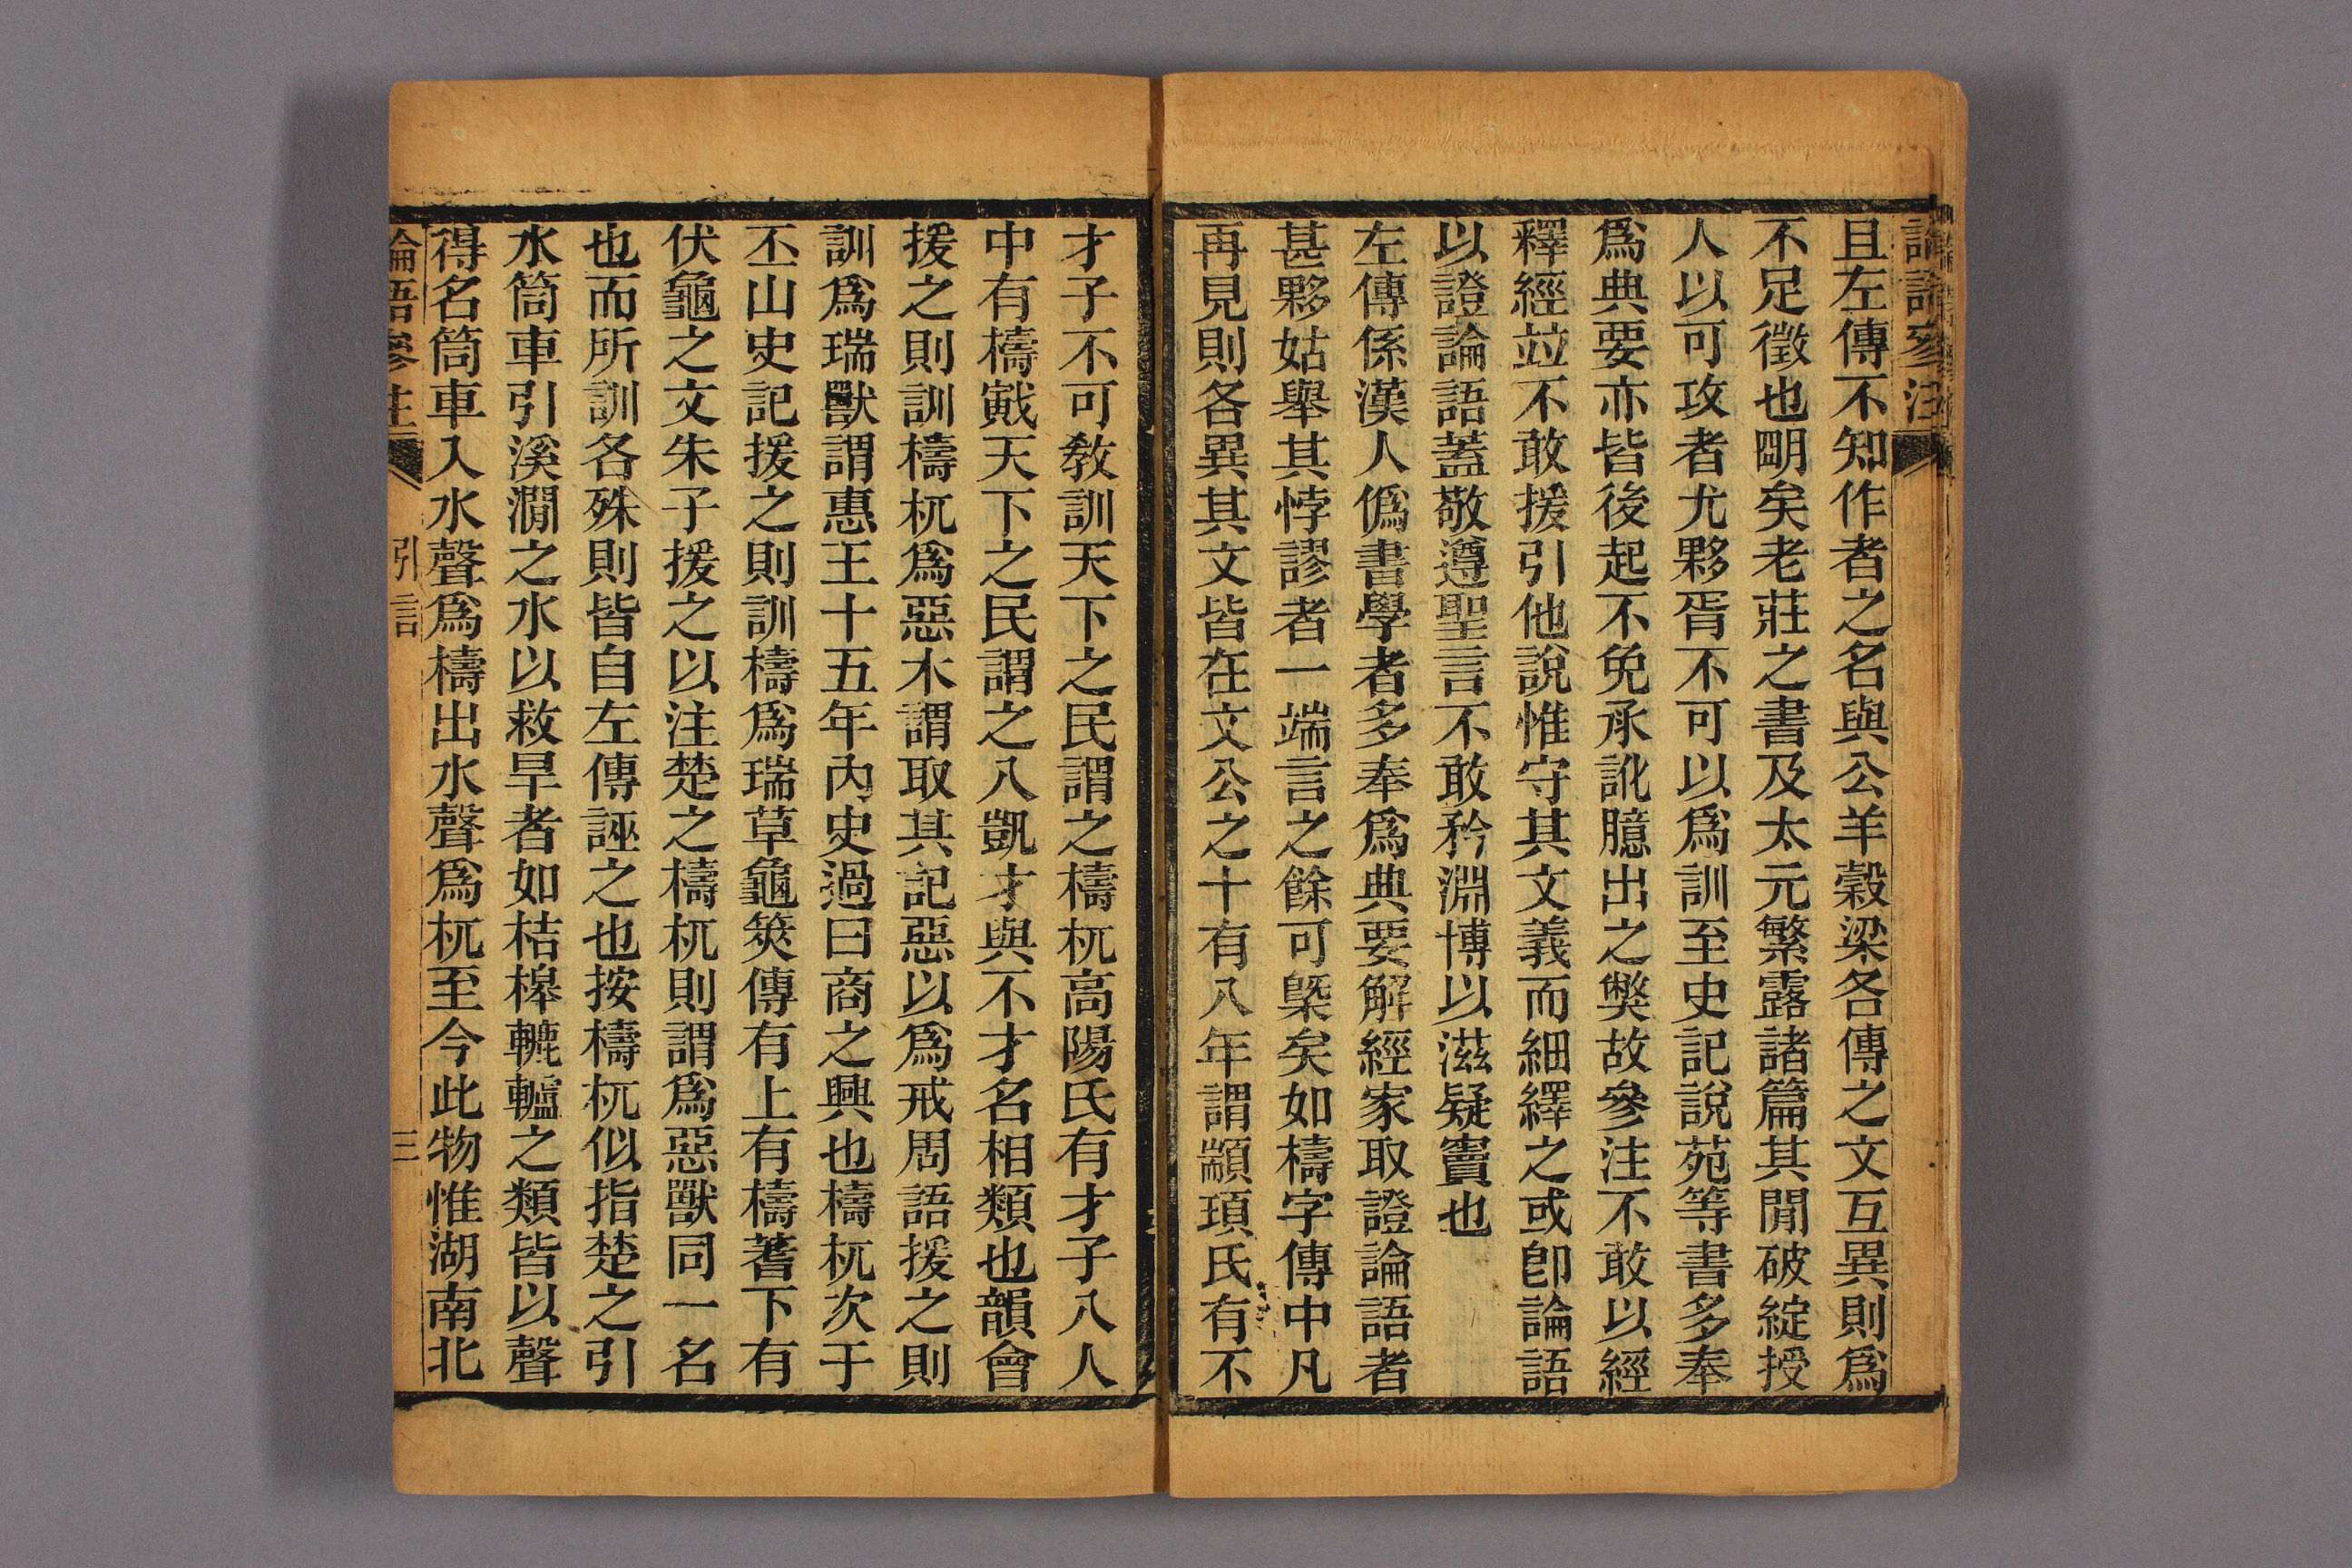 且左傳不知作者之名與公羊穀梁各傳之文互異則爲
不足徵也朙矣老莊之書及太元繁露諸篇其閒破綻授
人以可攻者尤夥胥不可以爲訓至史記說苑等書多奉
爲典要亦皆後起不免承訛臆出之獘故參注不敢以經
釋經竝不敢援引他說惟守其文義而細繹之或卽論語
以證論語蓋敬遵聖言不敢矜淵博以滋疑竇也
左傳係漢人僞書學者多奉爲典要解經家取證論語者
甚夥姑舉其悖謬者一端言之餘可槩矣如檮字傳中凡
再見則各異其文皆在文公之十有八年謂顓頊氏有不
才子不可敎訓天下之民謂之檮杌高陽氏有才子八人
中有檮戭天下之民謂之八凱才與不才名相類也韻會
援之則訓檮杌爲惡木謂取其記惡以爲戒周語援之則
訓爲瑞獸謂惠王十五年內史過曰商之興也檮杌次于
丕山史記援之則訓檮爲瑞草龜筴傳有上有檮蓍下有
伏龜之文朱子援之以注楚之檮杌則謂爲惡獸同一名
也而所訓各殊則皆自左傳誣之也按檮杌似指楚之引
水筒車引溪澗之水以救旱者如桔槔轆轤之類皆以聲
得名筒車入水聲爲檮出水聲爲杌至今此物惟湖南北
論語參注 引言 三